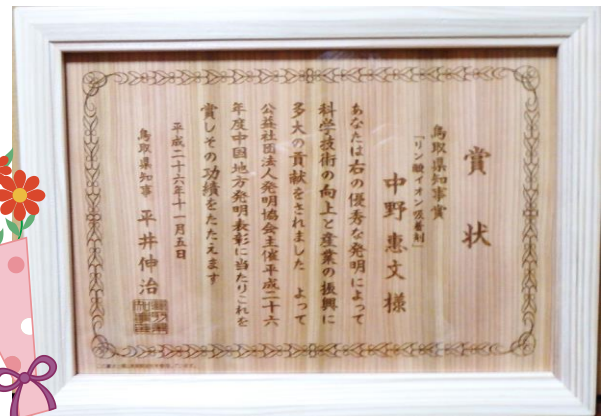 賞状
鳥取県知事賞
「リン酸イオン吸着剤」
中野惠文様
あなたは右の優秀な発明によって
科学技術の向上と産業の振興に
多大の貢献をされました よって
公益社団法人発明協会主催平成二十六
年度中国地方発明表彰に当たりこれを
賞しその功績をたたえます
平成二十六年十一月五日
鳥取県知事 平井伸治